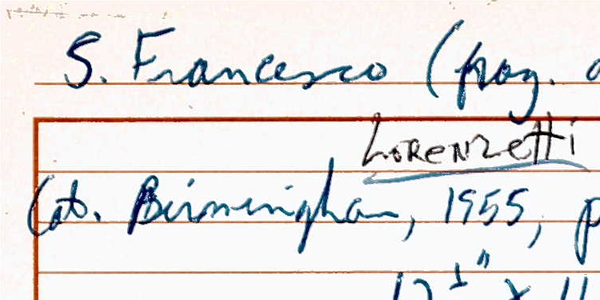 S. Francesco (frag.
LORENZETTI
Cat. Birmingham, 1955, p
12 ½" x 11